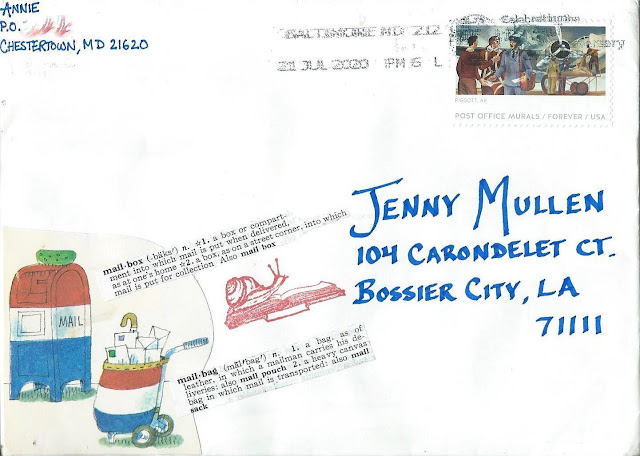 ANNIE
P.O.
CHESTERTOWN, MD 21620
BALTIMORE MD 212
21 JUL 2020 PM 6 L
PIGGOTT, AR
POST OFFICE MURALS / FOREVER / USA
JENNY MULLEN
104 CARONDELET CT.
BOSSIER CITY, LA
71111
mail·box (-bäks') n. ☆1. a box or compart-
ment into which mail is put when delivered,
as at one's home ☆2. a box, as on a street corner, into which
mail is put for collection Also mail box
MAIL
mail·bag (māl'bag') n. 1. a bag, as of
leather, in which a mailman carries his de-
liveries: also mail pouch 2. a heavy canvas
bag in which mail is transported: also mail
sack